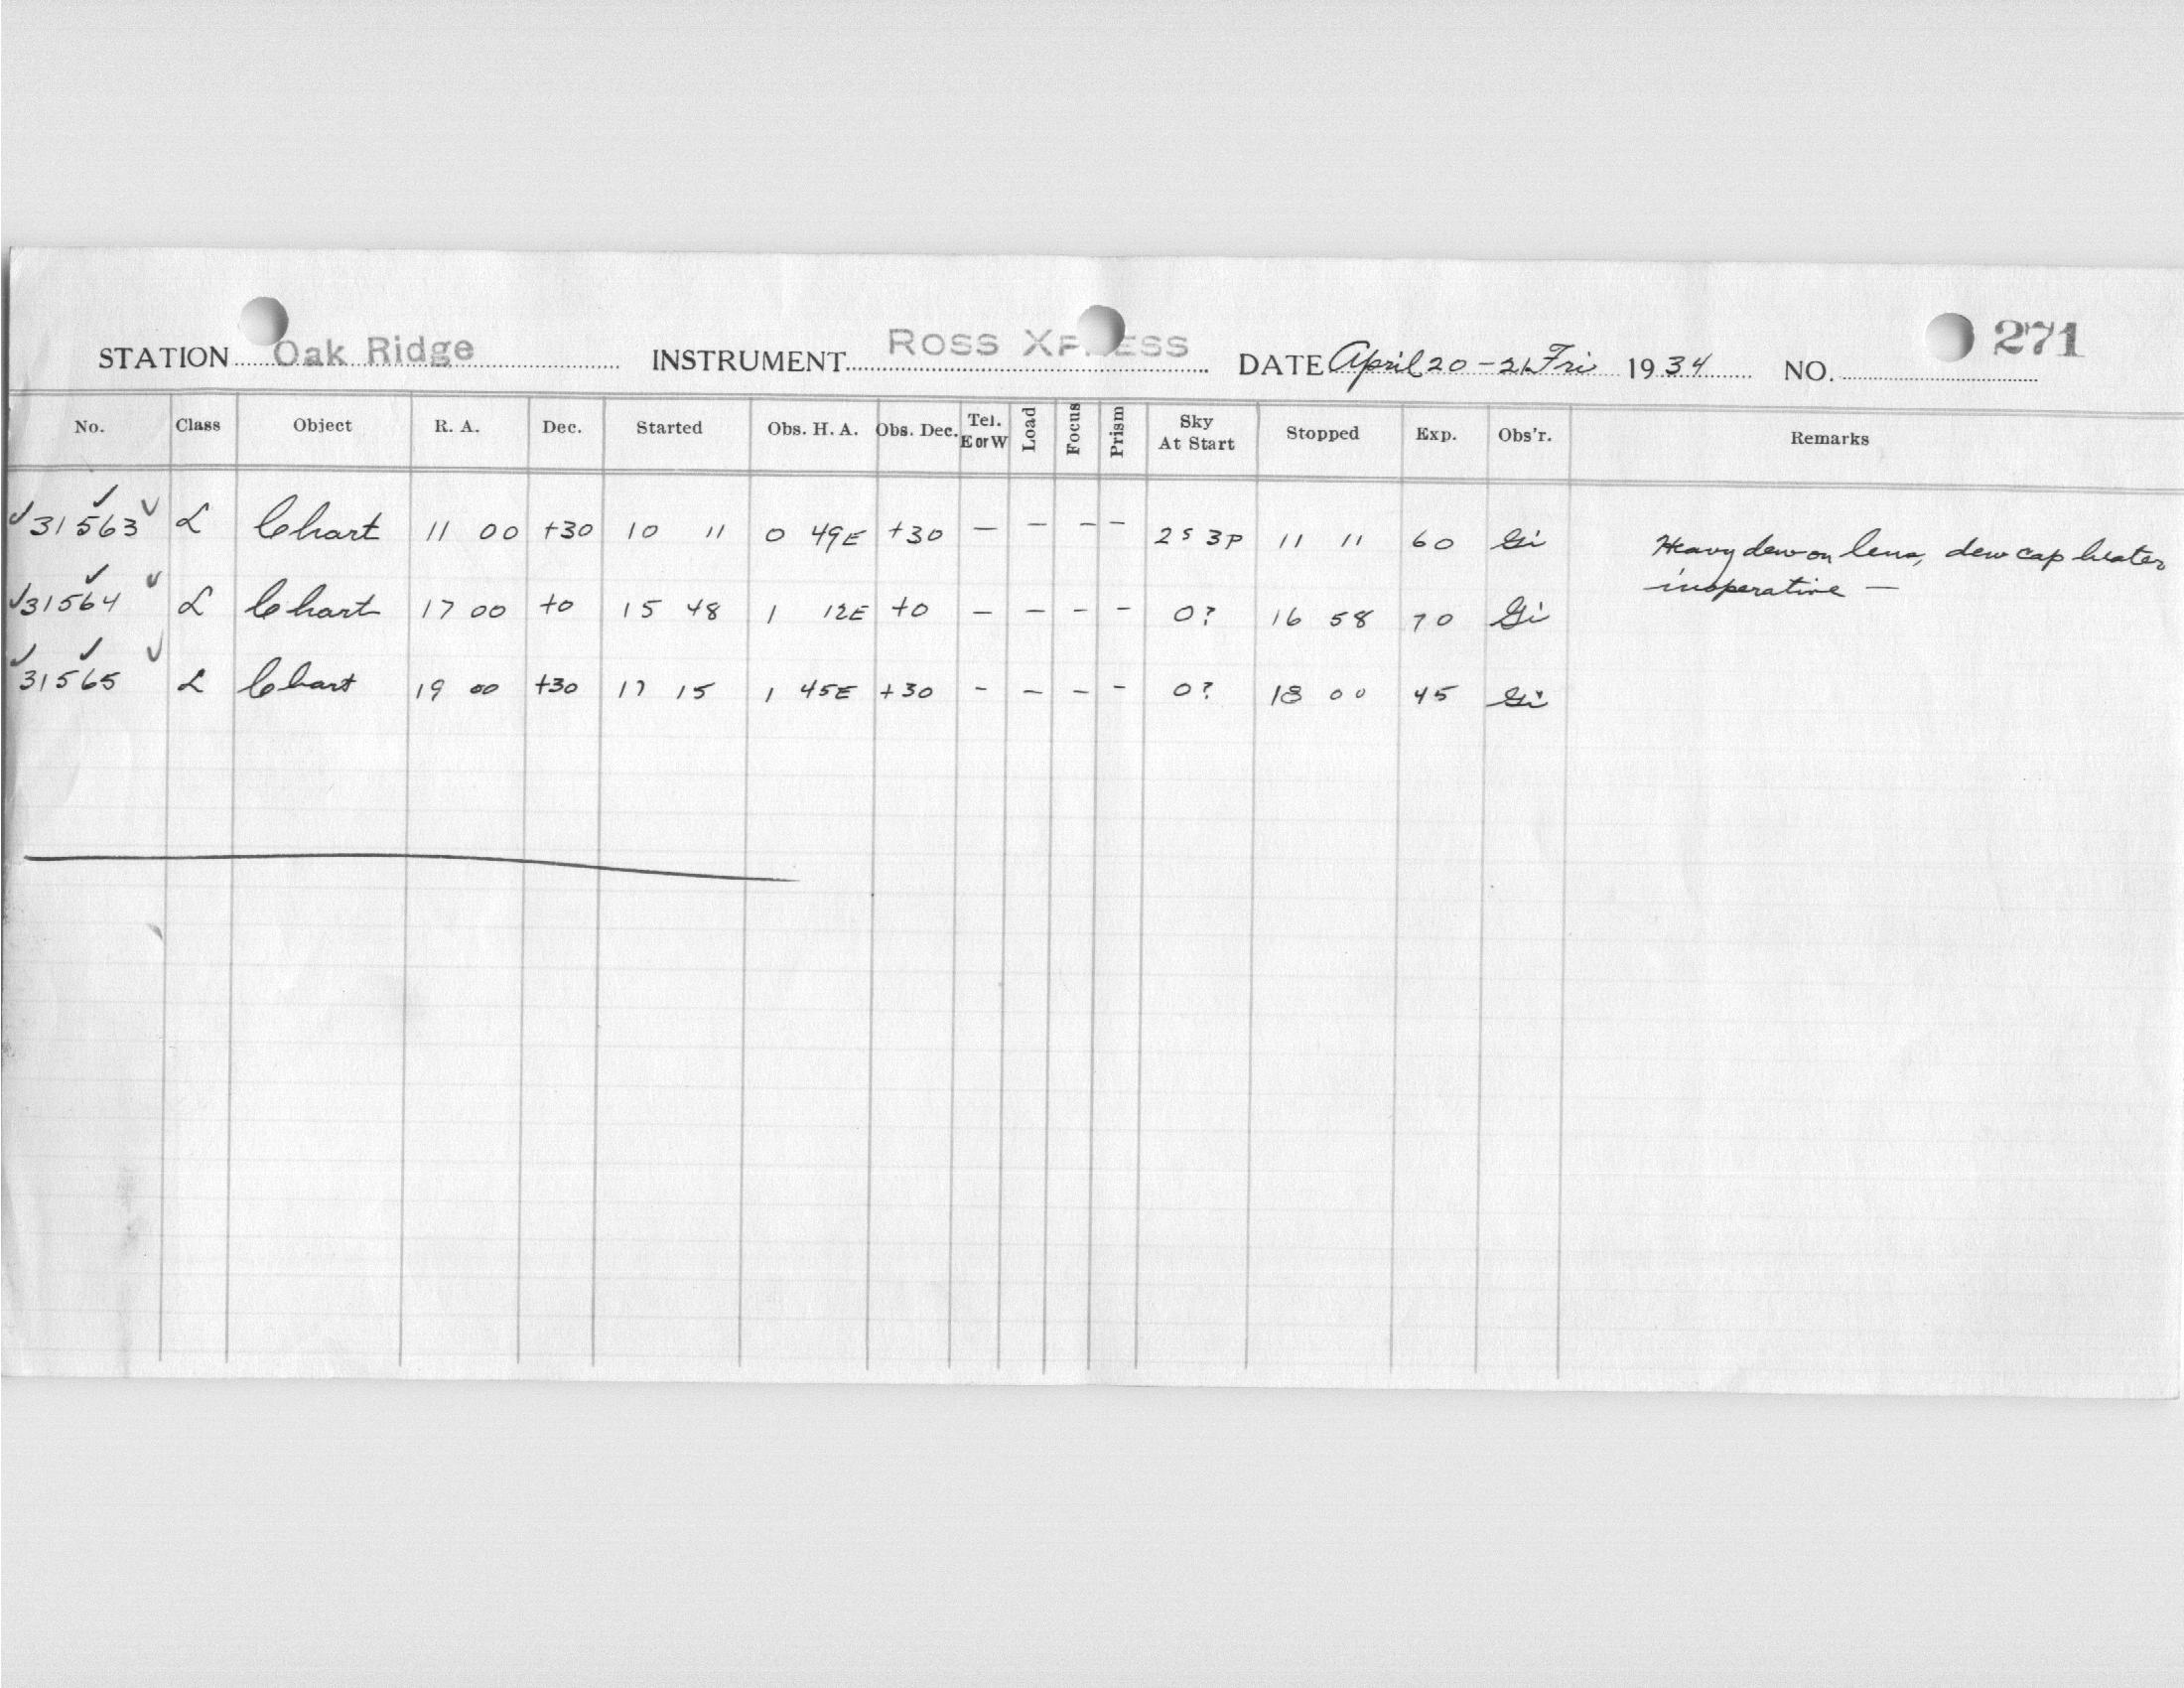 STATION Oak Ridge INSTRUMENT ROSS XPRESS DATE April 20 - 21 Fri 1934 NO. 271
No. Class Object R. A. Dec. Started Obs. H. A. Obs. Dec. Tel. E or W Load Focus Prism Sky At Start Stopped Exp. Obs'r. Remarks
✓31563 L Chart 11 00 +30 10 11 0 49E +30 — — — — 2S 3P 11 11 60 Gi Heavy dew on lens, dew cap heater
inoperative —
✓31564 L Chart 17 00 +0 15 48 1 12E +0 — — — — 0? 16 58 70 Gi
✓31565 L Chart 19 00 +30 17 15 1 45E +30 — — — — 0? 18 00 45 Gi